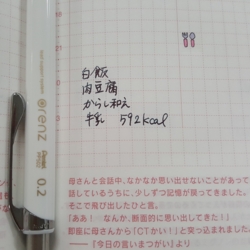 orenz
Pentel
0.2
白飯
肉豆腐
からし和え
牛乳 592kcal
母さんと会話中、なかなか思い出せないことがあって
話しているうちに、少しずつ記憶が戻ってきました。
そこで飛び出したひと言。
「ああ! なんか、断面的に思い出してきた!
即座に母さんから「CTかい!」と突っ込まれました。
──『今日の言いまつがい』より